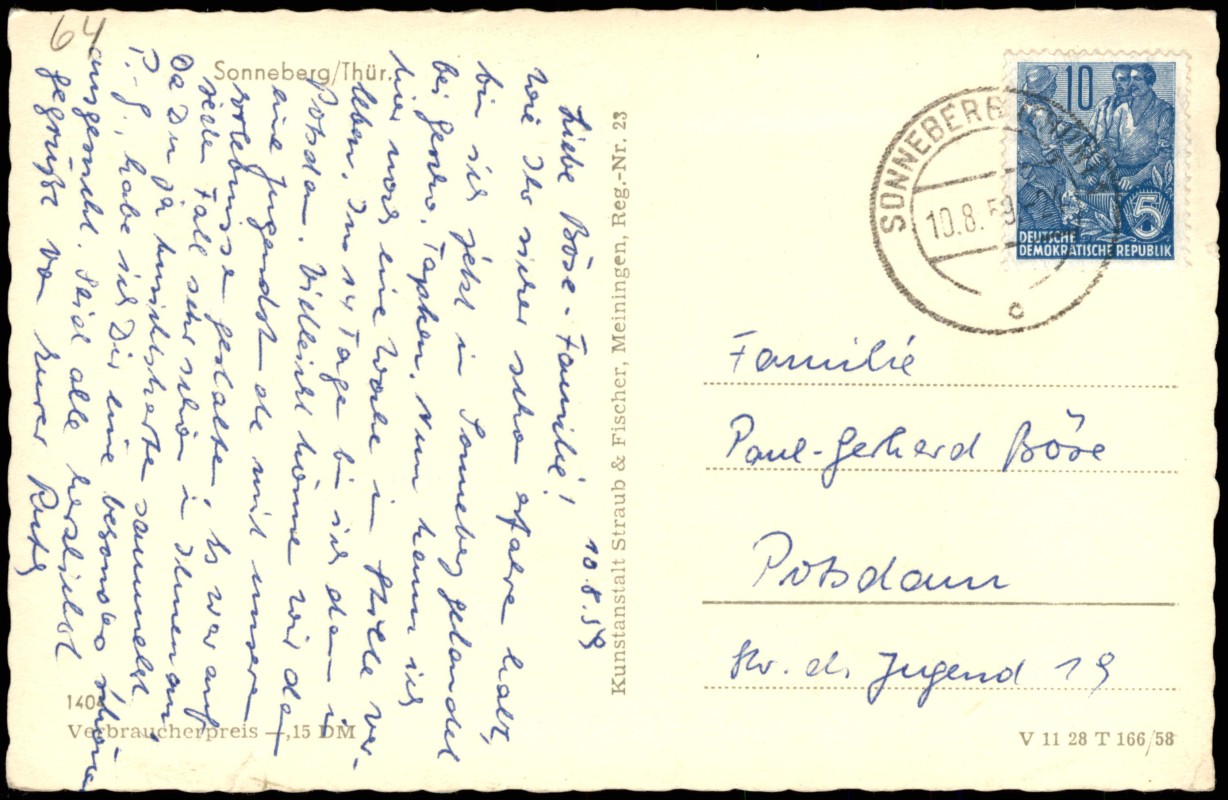 64
Sonneberg/Thür.
10.8.59
Liebe Böse-Familie!
wie Ihr sicher schon erfahren habt,
bin ich jetzt in Sonneberg gelandet
bei Gerdru. Taphen. Nun kann ich
hier noch eine Woche in Stille ver-
leben. In 14 Tage bin ich dann in
Potsdam. Vielleicht können wir dann
eine Jugendst de mit unseren
erlebnissen gestalten. Es war auf
jeden Fall sehr schön in Ilmenau.
Da Du ja Kunstkarte sammelst
P.-G., habe ich Dir eine besonders schöne
ausgesucht. Seid alle herzlichst
gegrüßt von Eurer Ruth
140
Verbraucherpreis —,15 DM
Kunstanstalt Straub & Fischer, Meiningen, Reg.-Nr. 23
SONNEBERG
10.8.59
c
10
5
DEUTSCHE
DEMOKRATISCHE REPUBLIK
Familie
Paul-Gerhard Böse
Potsdam
Str. d. Jugend 19
V 11 28 T 166/58